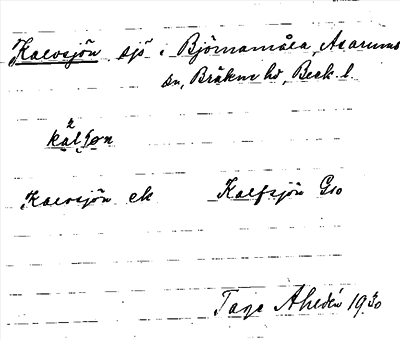 Kalvsjön sjö i Björnamåla, Asarums
sn, Bräkne hd, Blek. l.
kalʃøn
Kalvsjön ek Kalfsjön GSo
Tage Ahldén 1930